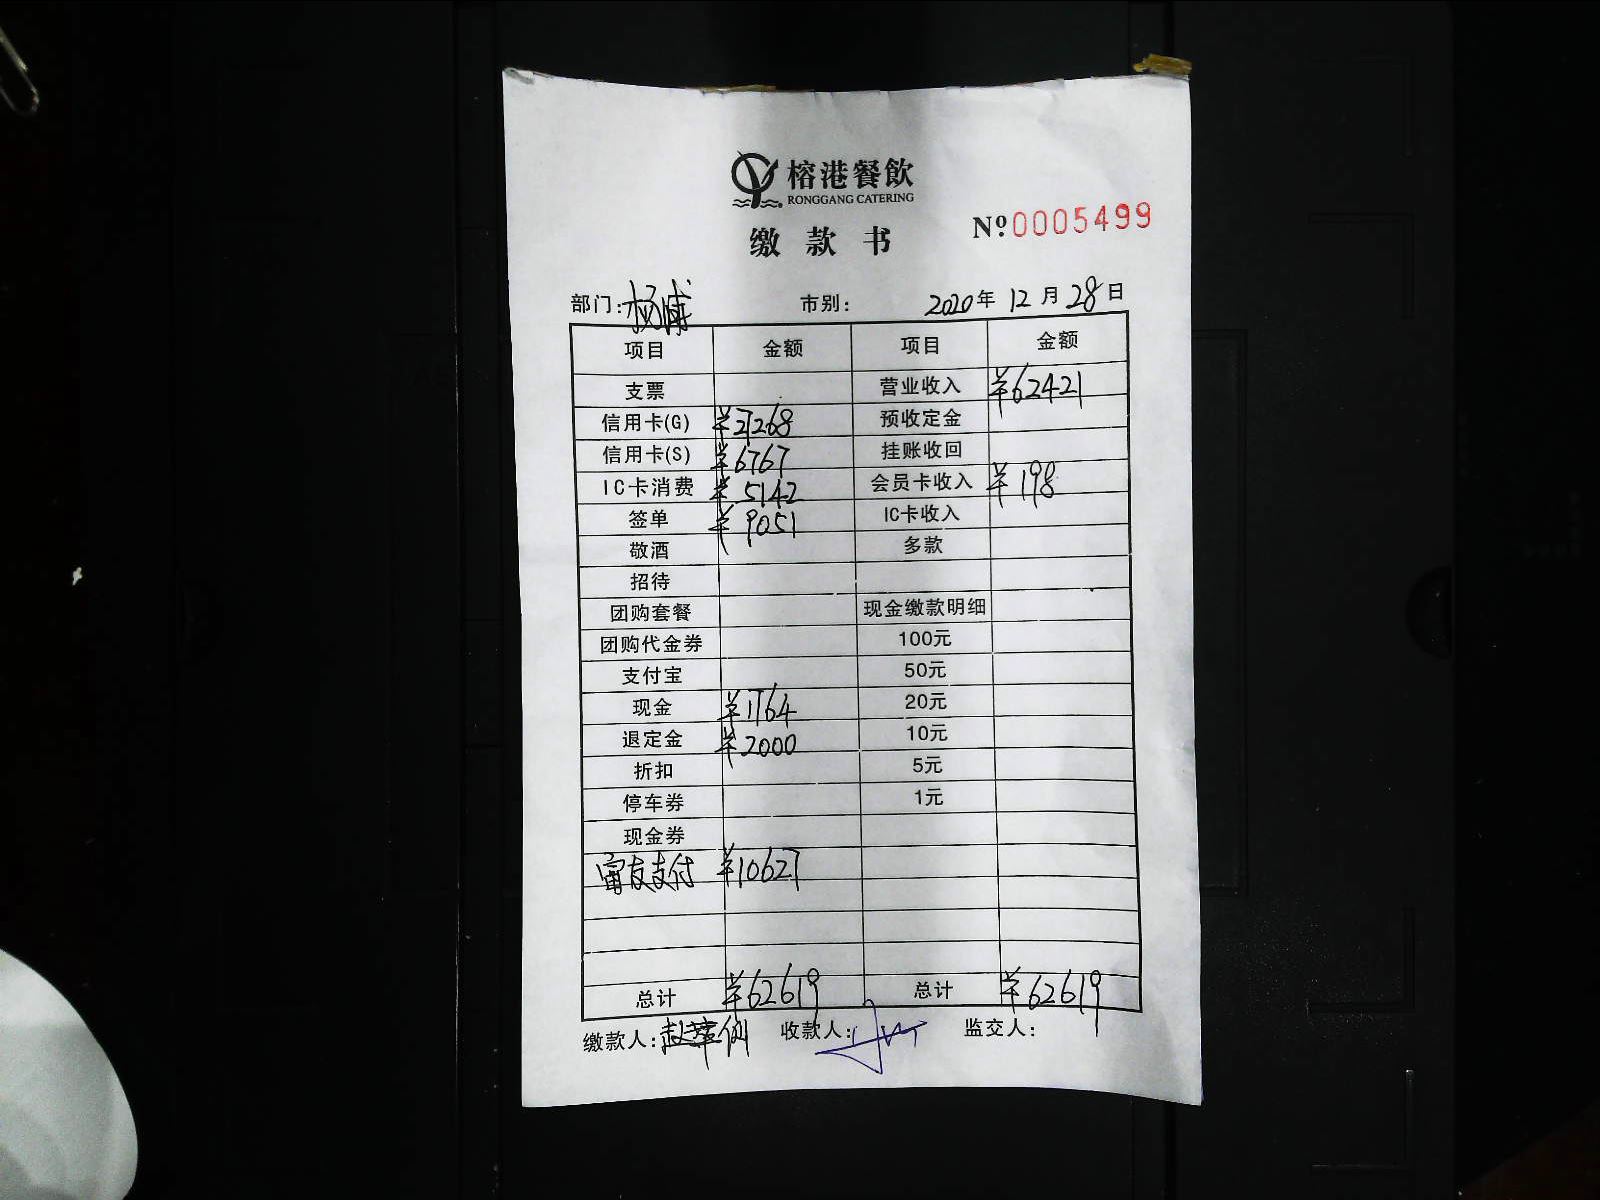 榕港餐飲
RONGGANG CATERING
缴款书
Nº 0005499
部门：杨浦 市别： 2020年12月28日
项目 金额 项目 金额
支票 营业收入 ¥62421
信用卡(G) ¥27268 预收定金
信用卡(S) ¥6767 挂账收回
IC卡消费 ¥5142 会员卡收入 ¥198
签单 ¥9051 IC卡收入
敬酒 多款
招待
团购套餐 现金缴款明细
团购代金券 100元
支付宝 50元
现金 ¥1764 20元
退定金 ¥2000 10元
折扣 5元
停车券 1元
现金券
富友支付 ¥10627
总计 ¥62619 总计 ¥62619
缴款人： 收款人： 监交人：